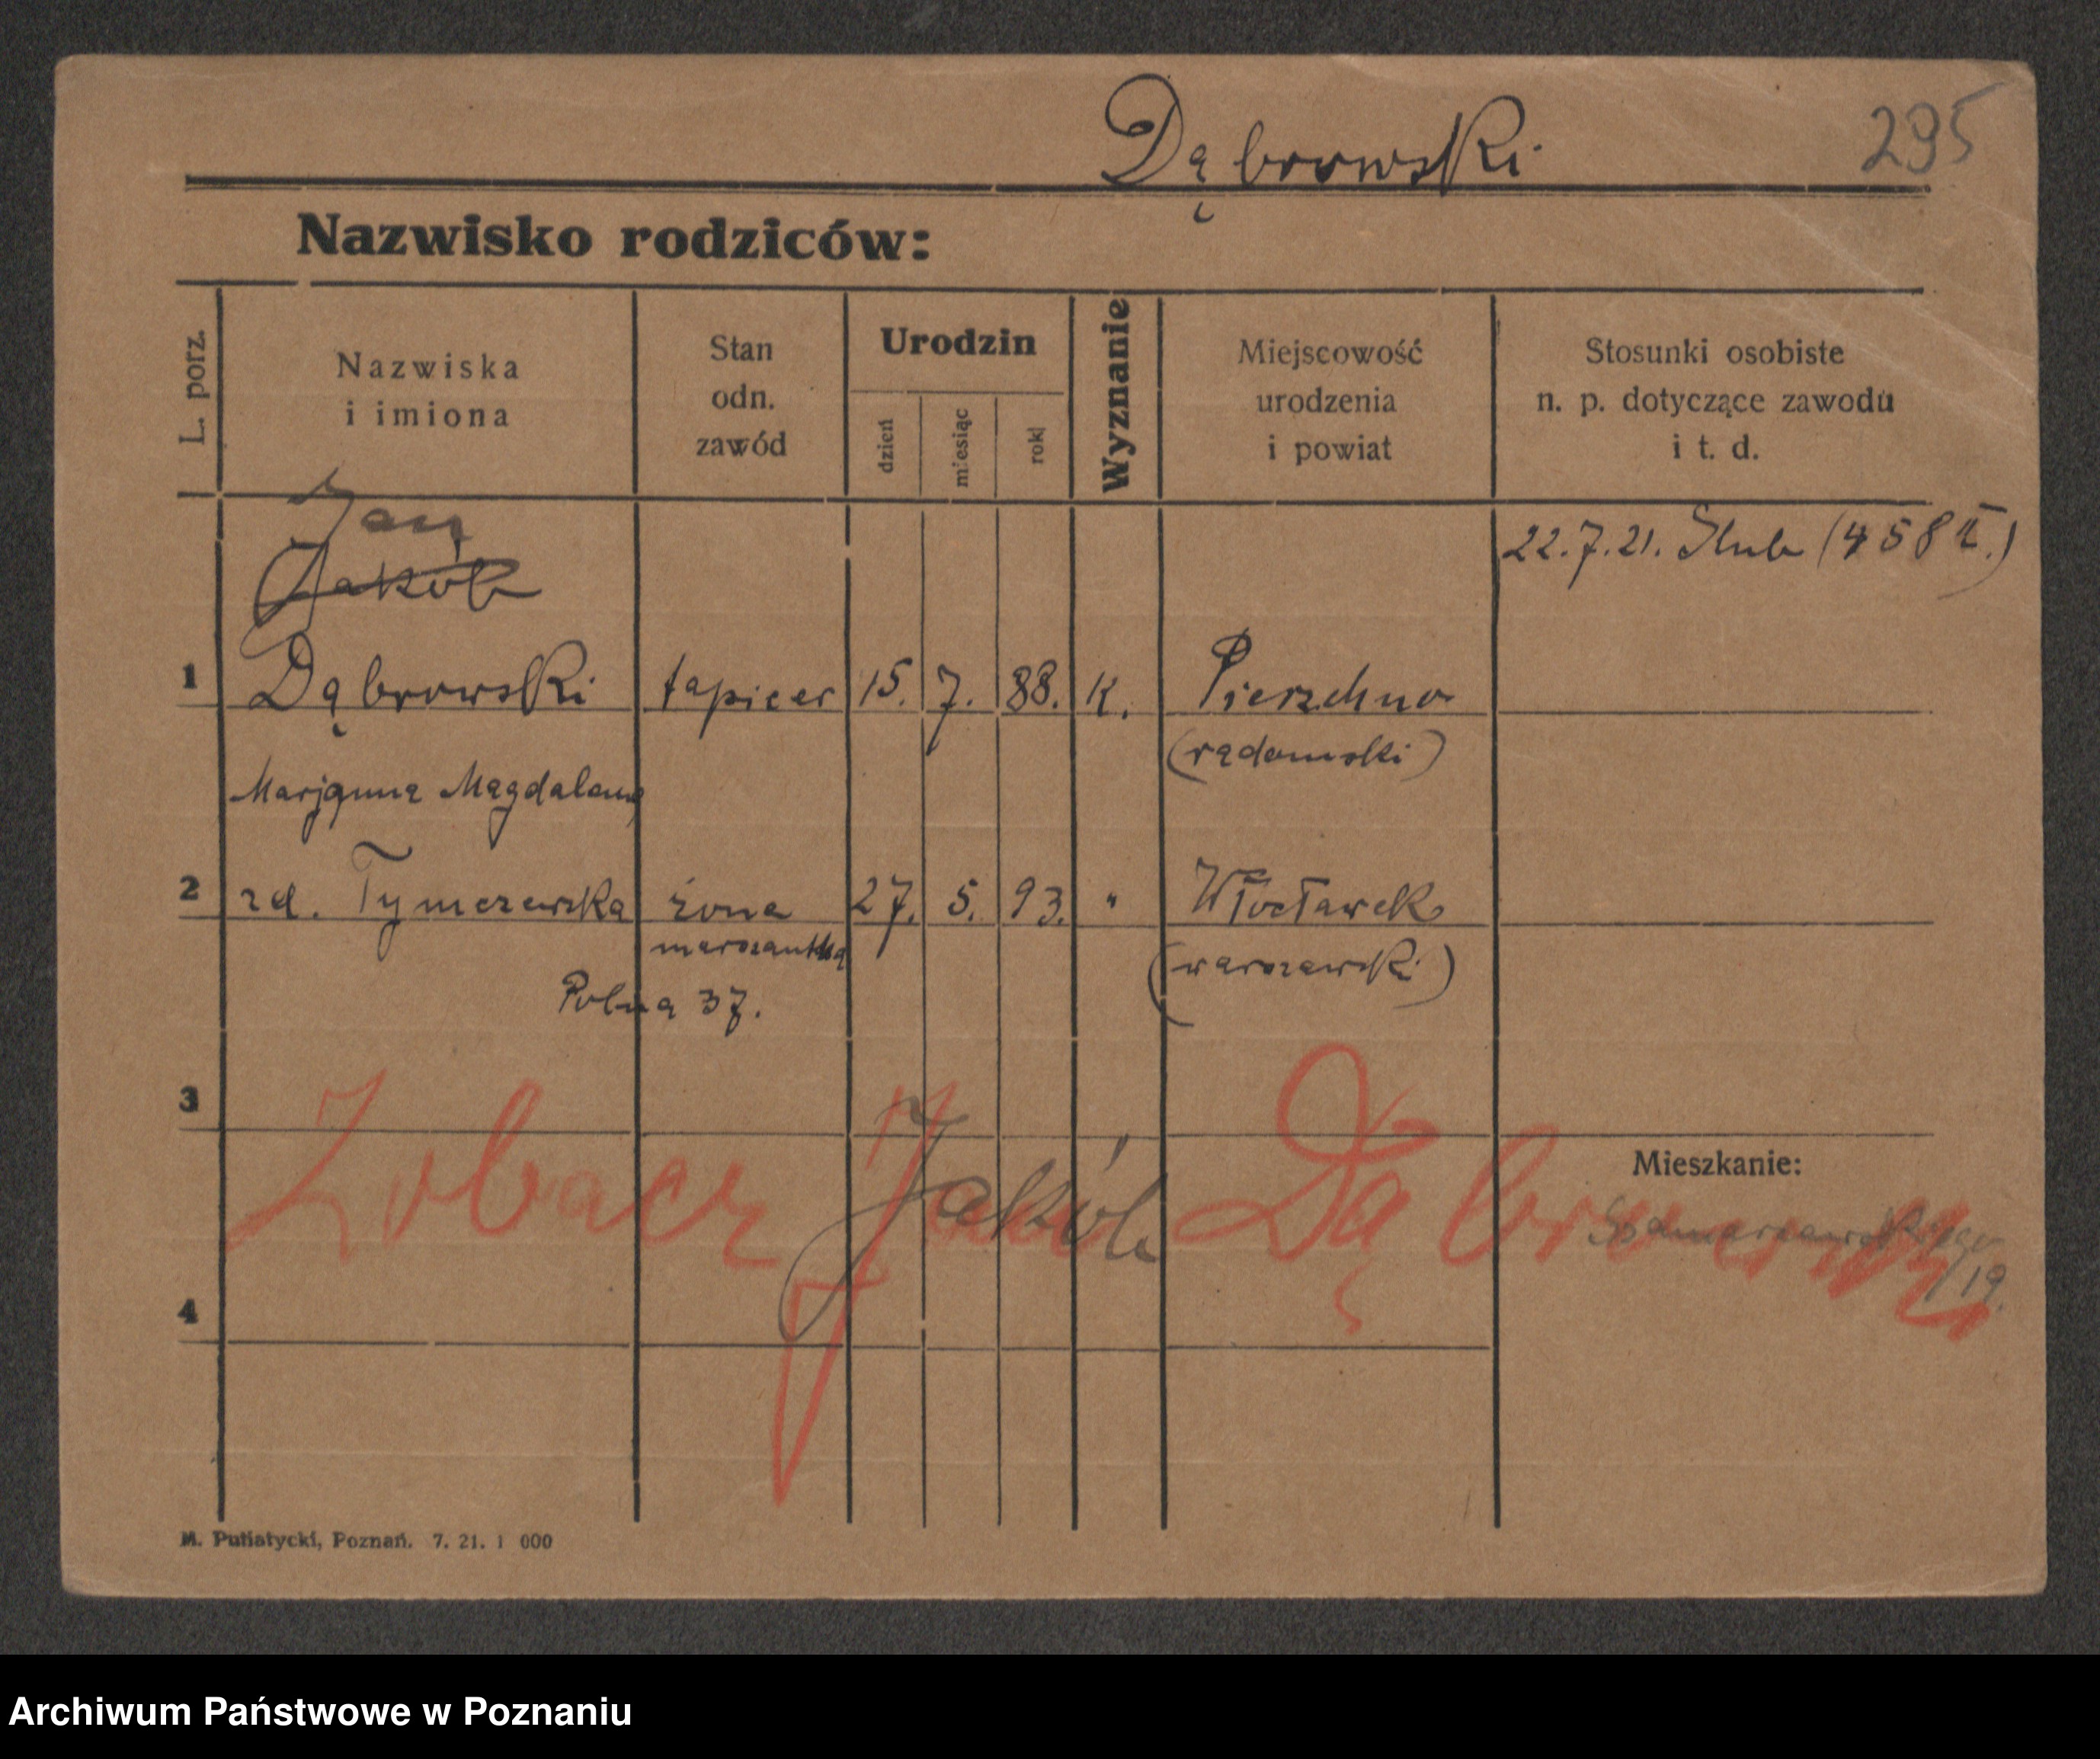 Dąbrowski
295
Nazwisko rodziców:
L. porz.
Nazwiska
i imiona
Stan
odn.
zawód
Urodzin
dzień
miesiąc
rok
Wyznanie
Miejscowość
urodzenia
i powiat
Stosunki osobiste
n. p. dotyczące zawodu
i t. d.
Jan
Jakób
22.7.21. Ślub (458 II.)
1 Dąbrowski tapicer 15. 7. 88. K. Pierzchno
(radomski)
Marjanna Magdalena
2 zd. Tymczewska żona 27. 5. 93. " Włocławek
(warszawski)
Polna 37.
3
Zobacz Jakób Dąbrowski
Mieszkanie:
19.
4
M. Putiatycki, Poznań. 7. 21. 1 000
Archiwum Państwowe w Poznaniu